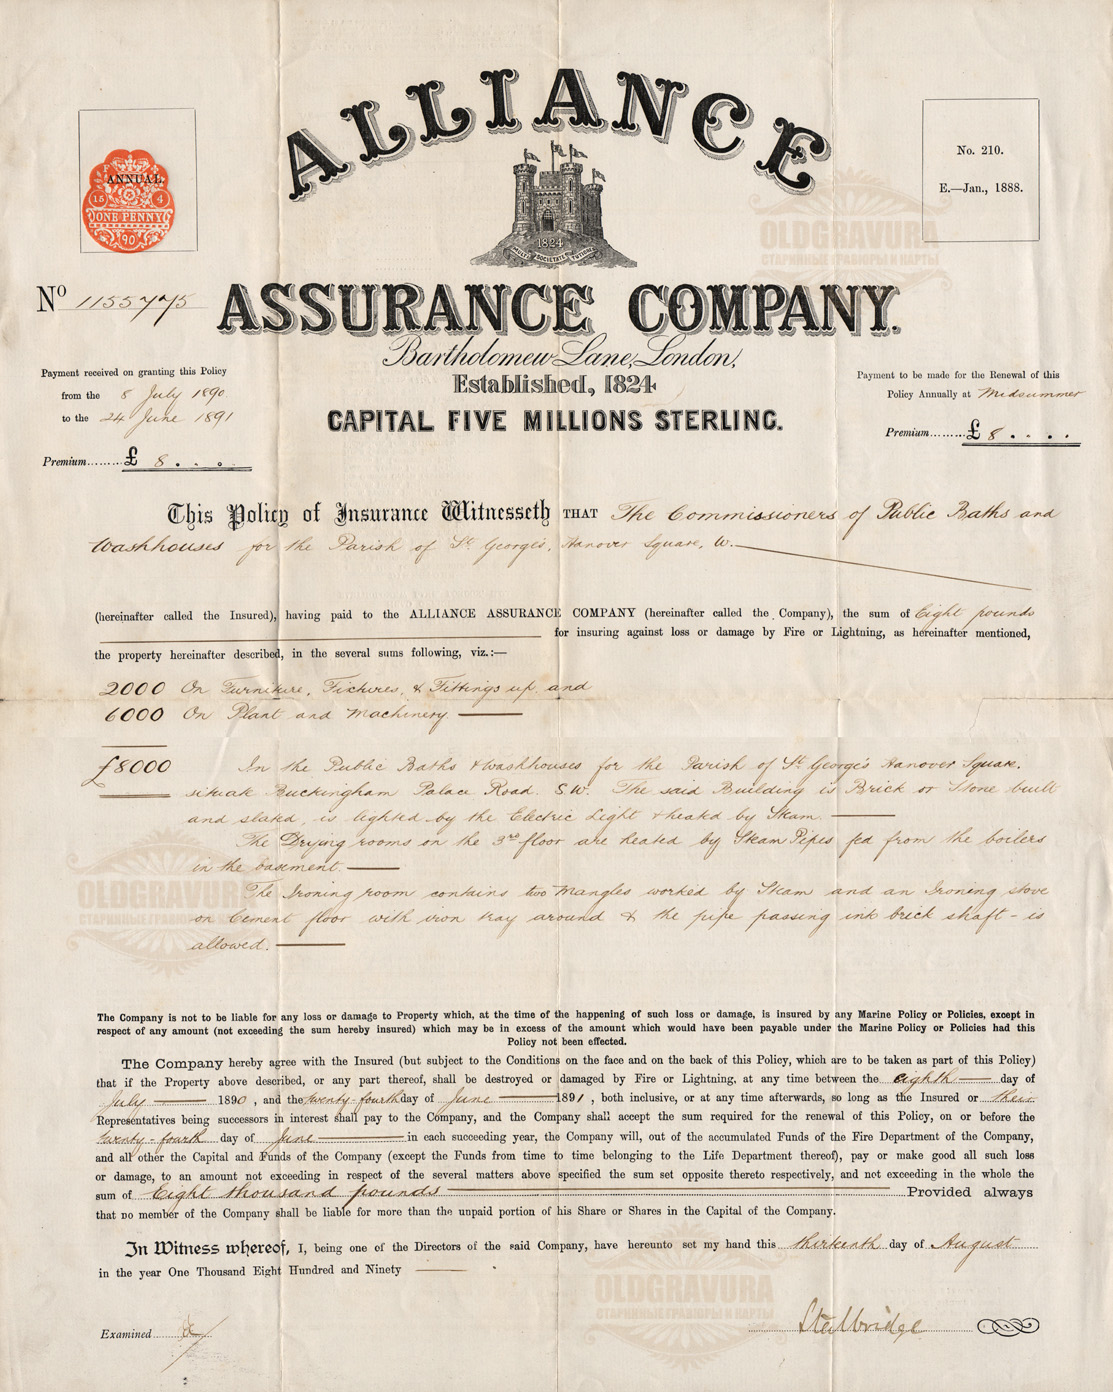 ALLIANCE
ANNUAL
15 4
ONE PENNY
90
No. 210.
E.—Jan., 1888.
1824
OLDGRAVURA
СТАРИННЫЕ ГРАВЮРЫ И КАРТЫ
No 1155775
ASSURANCE COMPANY.
Bartholomew Lane, London,
Established, 1824
CAPITAL FIVE MILLIONS STERLING.
Payment received on granting this Policy
from the 8 July 1890
to the 24 June 1891
Premium......... £ 8 . . .
Payment to be made for the Renewal of this
Policy Annually at Midsummer
Premium......... £ 8 . . . .
This Policy of Insurance Witnesseth THAT The Commissioners of Public Baths and
Washhouses for the Parish of St. George's, Hanover Square, W.
(hereinafter called the Insured), having paid to the ALLIANCE ASSURANCE COMPANY (hereinafter called the Company), the sum of Eight pounds
for insuring against loss or damage by Fire or Lightning, as hereinafter mentioned,
the property hereinafter described, in the several sums following, viz.:—
2000 On Furniture, Fixtures, & Fittings up, and
6000 On Plant and Machinery —
£8000 In the Public Baths & Washhouses for the Parish of St. George's Hanover Square.
situate Buckingham Palace Road. S.W. The said Building is Brick or Stone built
and slated, is lighted by the Electric Light & heated by Steam. —
The Drying rooms on the 3rd floor are heated by Steam Pipes fed from the boilers
in the basement. —
The Ironing room contains two Mangles worked by Steam and an Ironing stove
on Cement floor with iron tray around & the pipe passing into brick shaft - is
allowed. —
OLDGRAVURA
СТАРИННЫЕ ГРАВЮРЫ И КАРТЫ
The Company is not to be liable for any loss or damage to Property which, at the time of the happening of such loss or damage, is insured by any Marine Policy or Policies, except in
respect of any amount (not exceeding the sum hereby insured) which may be in excess of the amount which would have been payable under the Marine Policy or Policies had this
Policy not been effected.
The Company hereby agree with the Insured (but subject to the Conditions on the face and on the back of this Policy, which are to be taken as part of this Policy)
that if the Property above described, or any part thereof, shall be destroyed or damaged by Fire or Lightning, at any time between the eighth — day of
July — 1890 , and the twenty-fourth day of June — 1891 , both inclusive, or at any time afterwards, so long as the Insured or their
Representatives being successors in interest shall pay to the Company, and the Company shall accept the sum required for the renewal of this Policy, on or before the
twenty-fourth day of June — in each succeeding year, the Company will, out of the accumulated Funds of the Fire Department of the Company,
and all other the Capital and Funds of the Company (except the Funds from time to time belonging to the Life Department thereof), pay or make good all such loss
or damage, to an amount not exceeding in respect of the several matters above specified the sum set opposite thereto respectively, and not exceeding in the whole the
sum of Eight thousand pounds — Provided always
that no member of the Company shall be liable for more than the unpaid portion of his Share or Shares in the Capital of the Company.
In Witness whereof, I, being one of the Directors of the said Company, have hereunto set my hand this thirteenth day of August
in the year One Thousand Eight Hundred and Ninety —
OLDGRAVURA
СТАРИННЫЕ ГРАВЮРЫ И КАРТЫ
Examined
Stalbridge